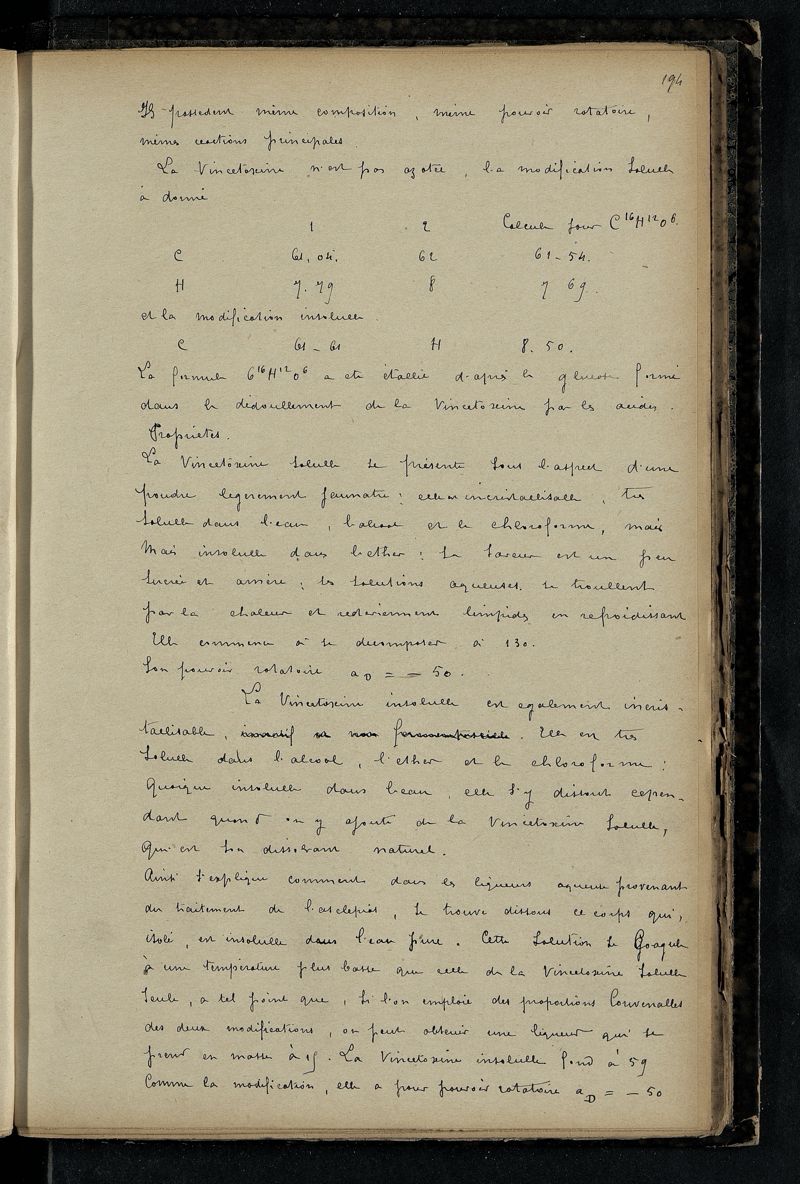 194
Ils possedent même composition, même pouvoir rotatoire,
mêmes reactions principales.
La Vincetoxine n'est pas azotée, la modification soluble
à donné
1 2 Calculé pour C16H12O6.
C 61,04. 62 61-54.
H 7.79 8 7 69.
et la modification insoluble
C 61-61 H 8.50.
La formule C16H12O6 a ete établie d'après le glucose formé
dans le dédoublement de la Vincetoxine par les acides.
Propriétés.
La Vincetoxine soluble se présente sous l'aspect d'une
poudre legerement jaunatre; elle incristallisable, très
soluble dans l'eau, l'alcool et le chloroforme, mais
Mais insoluble dans l'ether: Sa saveur est un peu
sucrée et amère; les solutions aqueuses se troublent
par la chaleur et redeviennent limpides en refroidissant
Elle commence à se decomposer à 130.
Son pouvoir rotatoire aD = - 50.
La Vincetoxine insoluble est egalement incris-
tallisable, Elle est très
soluble dans l'alcool, l'ether et le chloroforme:
Quoique insoluble dans l'eau, elle s'y dissout cepen-
dant quand on y ajoute de la Vincetoxine soluble,
qui est son dissolvant naturel.
Ainsi s'explique comment dans les liqueurs aqueuse provenant
du traitement de l'asclepias, se trouve dissous ce corps qui,
isolé, est insoluble dans l'eau pure. Cette solution se Coagule
à une température plus basse que celle de la Vincetoxine soluble
seule, a tel point que, si l'on emploie des proportions Convenables
des deux modifications, on peut obtenir une liqueur qui se
prend en masse à 15. La Vincetoxine insoluble fond à 59
Comme la modification, elle a pour pouvoir rotatoire aD = - 50